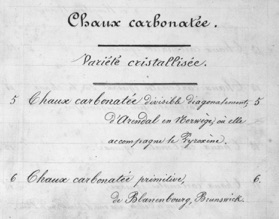 Chaux carbonatée.
Variété cristallisée.
5 Chaux carbonatée divisible diagonalement, 5
d'Arendal en Norwège, où elle
accompagne le Pyroxène.
6 Chaux carbonatée primitive, 6.
de Blanenbourg, Brunswick.